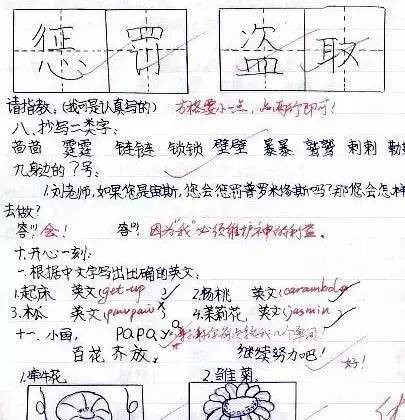 惩罚 盗取
请指教:(我可是认真写的) 方格要小一点,占两行即可!
八.抄写二类字:
苗苗 霆霆 链链 锁锁 壁壁 暴暴 鹫鹫 刺刺 勒
九.身边的?号:
1.刘老师,如果您是宙斯,您会惩罚普罗米修斯吗?那您会怎样
去做?
答:会! 答:因为"我"必须维护神的利益。
十.开心一刻:
一.根据中文字写出正确的英文:
1.起床 英文(get up) 2.杨桃 英文(carambola
3.木瓜 英文(pawpaw) 4.茉莉花 英文(jasmin)
十一.小国, papaya
百花齐放。 继续努力吧! 好!
1.牵牛花 2.雏菊.